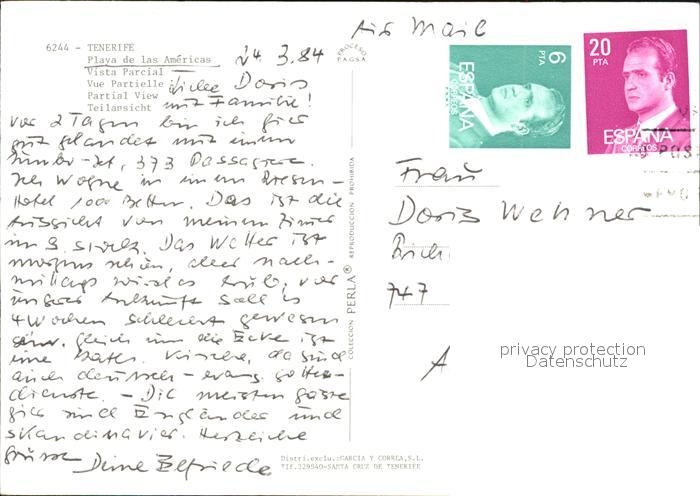 6244 - TENERIFE
Playa de las Américas
Vista Parcial
Vue Partielle
Partial View
Teilansicht
24.3.84
Liebe Doris
mit Familie!
Vor 2 Tagen bin ich hier
gut gelandet mit einem
Jumbo-Jet, 373 Passagiere.
Ich wohne in einem Riesen-
Hotel 1000 Betten. Das ist die
Aussicht von meinem Zimmer
im 9. Stock. Das Wetter ist
morgens schön, aber nach-
mittags wird es trüb, vor
unserer Ankunft soll es
4 Wochen schlecht gewesen
sein. Gleich um die Ecke ist
eine kath. Kirche, da sind
auch deutsch-evang. Gottes-
dienste. - Die meisten Gäste
hier sind Engländer und
Skandinavier. Herzliche
Grüsse Deine Elfriede
PROCEDE
P.A.G.S.A.
COLECCION PERLA® REPRODUCCION PROHIBIDA
Distri.exclu.:GARCIA Y CORREA,S.L.
Tlf.229540-SANTA CRUZ DE TENERIFE
Air Mail
6 PTA
ESPAÑA
CORREOS
20 PTA
ESPAÑA
CORREOS
Frau
Doris
747
A
privacy protection
Datenschutz